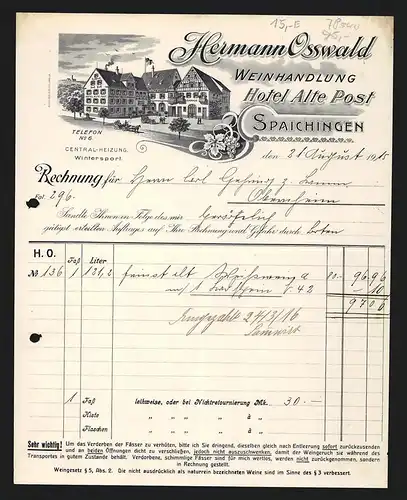 15,-E
Hermann Osswald
WEINHANDLUNG
Hotel Alte Post
SPAICHINGEN
TELEFON
No 6.
CENTRAL-HEIZUNG.
Wintersport.
den 31 August 1915
Rechnung für Herrn Carl
Fol. 296.
Sandte Ihnen in Folge des mir
gütigst erteilten Auftrages auf Ihre Rechnung und Gefahr durch Boten
H. O. Faß Liter
No 136 1 121,2 80.- 96.96
42 10
97 06
24/3/16
1 Faß leihweise, oder bei Nichtretournierung Mk. 30.—
Kiste „ „ „ „ à „
Flaschen „ „ „ „ à „
Sehr wichtig! Um das Verderben der Fässer zu verhüten, bitte ich Sie dringend, dieselben gleich nach Entleerung sofort zurückzusenden
und an beiden Öffnungen dicht zu verschließen, jedoch nicht auszuschwenken, damit der Weingeruch sie während des
Transportes in gutem Zustande behält. Verdorbene, schimmelige Fässer sind für mich wertlos, werden nicht zurückgenommen, sondern
in Rechnung gestellt.
Weingesetz § 5, Abs. 2. Die nicht ausdrücklich als naturrein bezeichneten Weine sind im Sinne des § 3 verbessert.